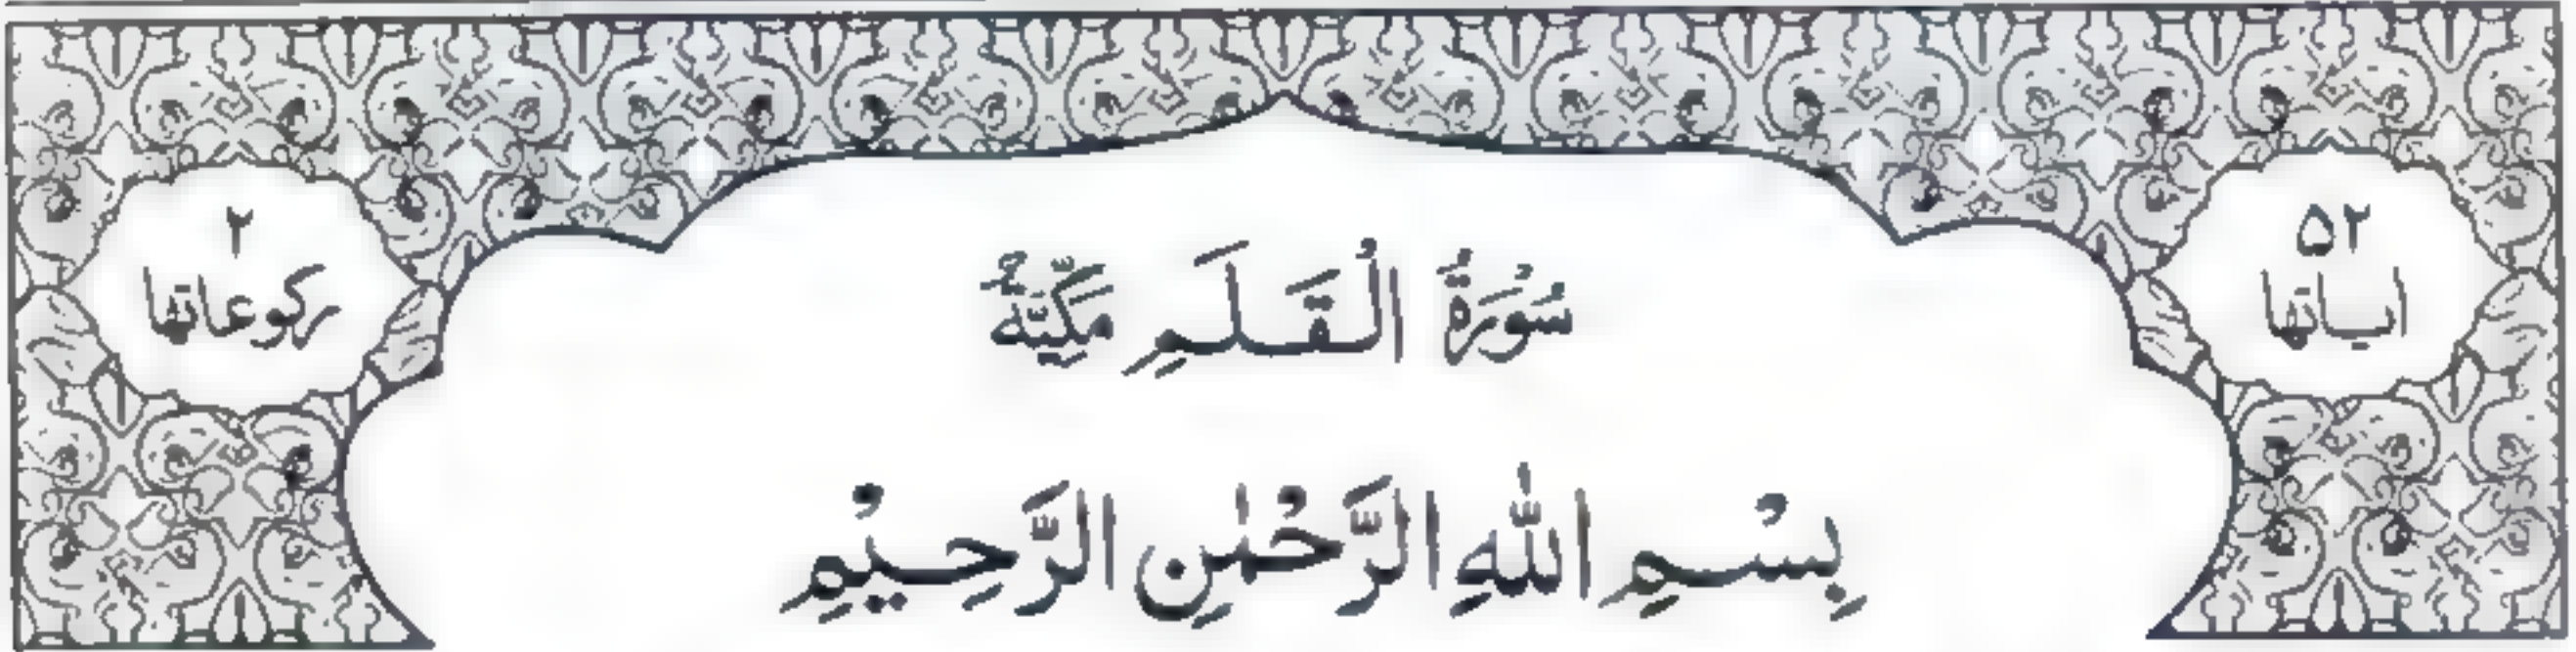 ۵۲
اٰیاتها
سُوْرَةُ الْقَلَمِ مَكِّيَّةٌ
۲
ركوعاتها
بِسْمِ اللّٰهِ الرَّحْمٰنِ الرَّحِيْمِ